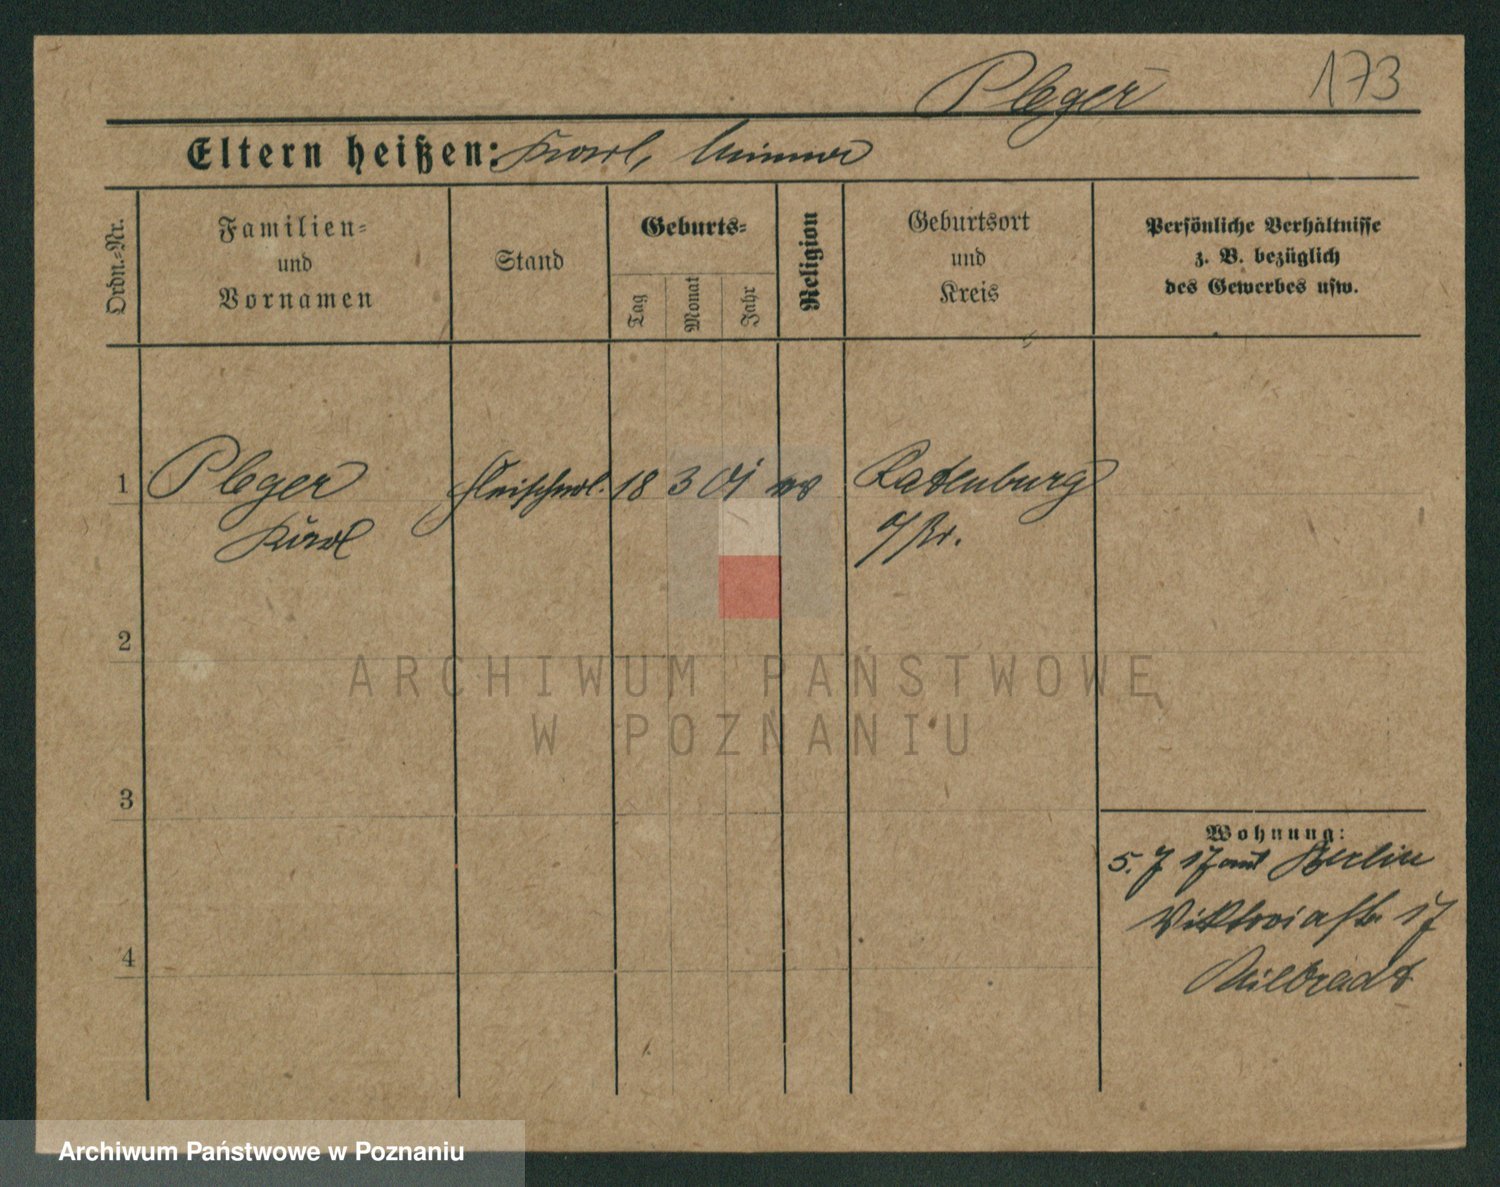 Pleger 173
Eltern heißen: Karl, Minna
Ordn.-Nr.
Familien-
und
Vornamen
Stand
Geburts-
Tag
Monat
Jahr
Religion
Geburtsort
und
Kreis
Persönliche Verhältnisse
z. B. bezüglich
des Gewerbes usw.
1 Pleger Fleischerl. 18 3 01 ev Ratenburg
Karl
2
ARCHIWUM PAŃSTWOWE
W POZNANIU
3
Wohnung:
5. 7 17 Berlin
Viktoriastr. 17
4
Milbradt
Archiwum Państwowe w Poznaniu